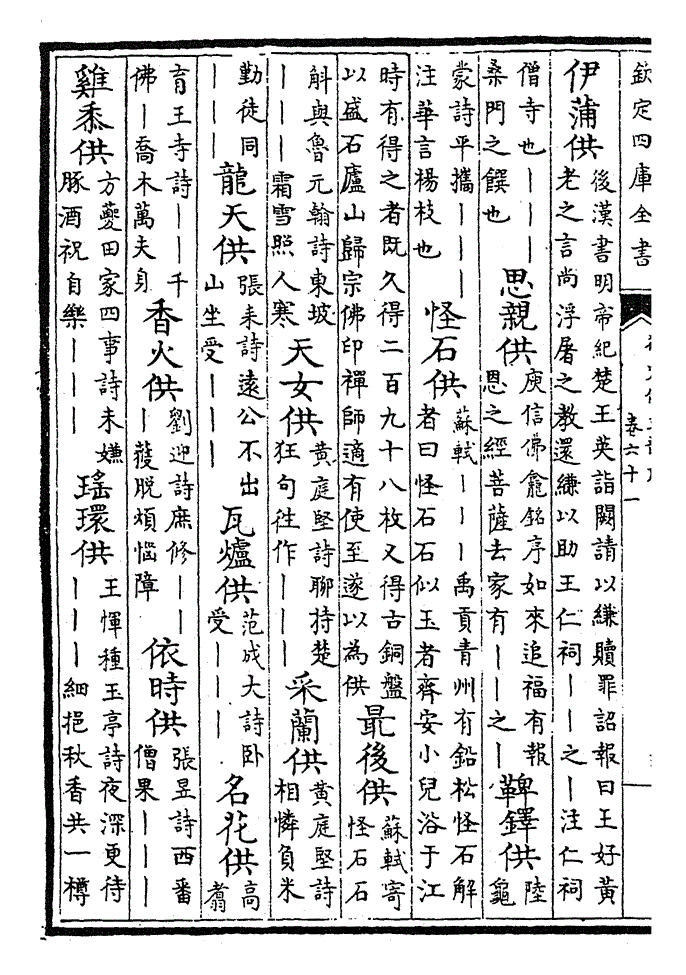 欽定四庫全書
卷六十一
伊蒲供
後漢書明帝紀楚王英詣闕請以縑贖罪詔報曰王好黃
老之言尚浮屠之教還縑以助王仁祠丨丨之丨注仁祠
僧寺也丨丨丨
桑門之饌也
思親供
庾信佛龕銘序如來追福有報
恩之經菩薩去家有丨丨之丨
鞞鐸供
陸
龜
蒙詩平攜丨丨丨
注華言楊枝也
怪石供
蘇軾丨丨丨禹貢青州有鉛松怪石解
者曰怪石石似玉者齊安小兒浴于江
時有得之者既久得二百九十八枚又得古銅盤
以盛石廬山歸宗佛印禪師適有使至遂以為供
最後供
蘇軾寄
怪石石
斛與魯元翰詩東坡
丨丨丨霜雪照人寒
天女供
黃庭堅詩聊持楚
狂句徃作丨丨丨
采蘭供
黃庭堅詩
相憐負米
勤徒同
丨丨丨
龍天供
張耒詩遠公不出
山坐受丨丨丨
瓦爐供
范成大詩卧
受丨丨丨
名花供
高
翥
育王寺詩丨丨千
佛丨喬木萬夫身
香火供
劉迎詩庶修丨丨
丨獲脱煩惱障
依時供
張昱詩西番
僧果丨丨丨
雞黍供
方夔田家四事詩未嫌
豚酒祝自樂丨丨丨
瑤環供
王惲種玉亭詩夜深更待
丨丨丨細挹秋香共一樽